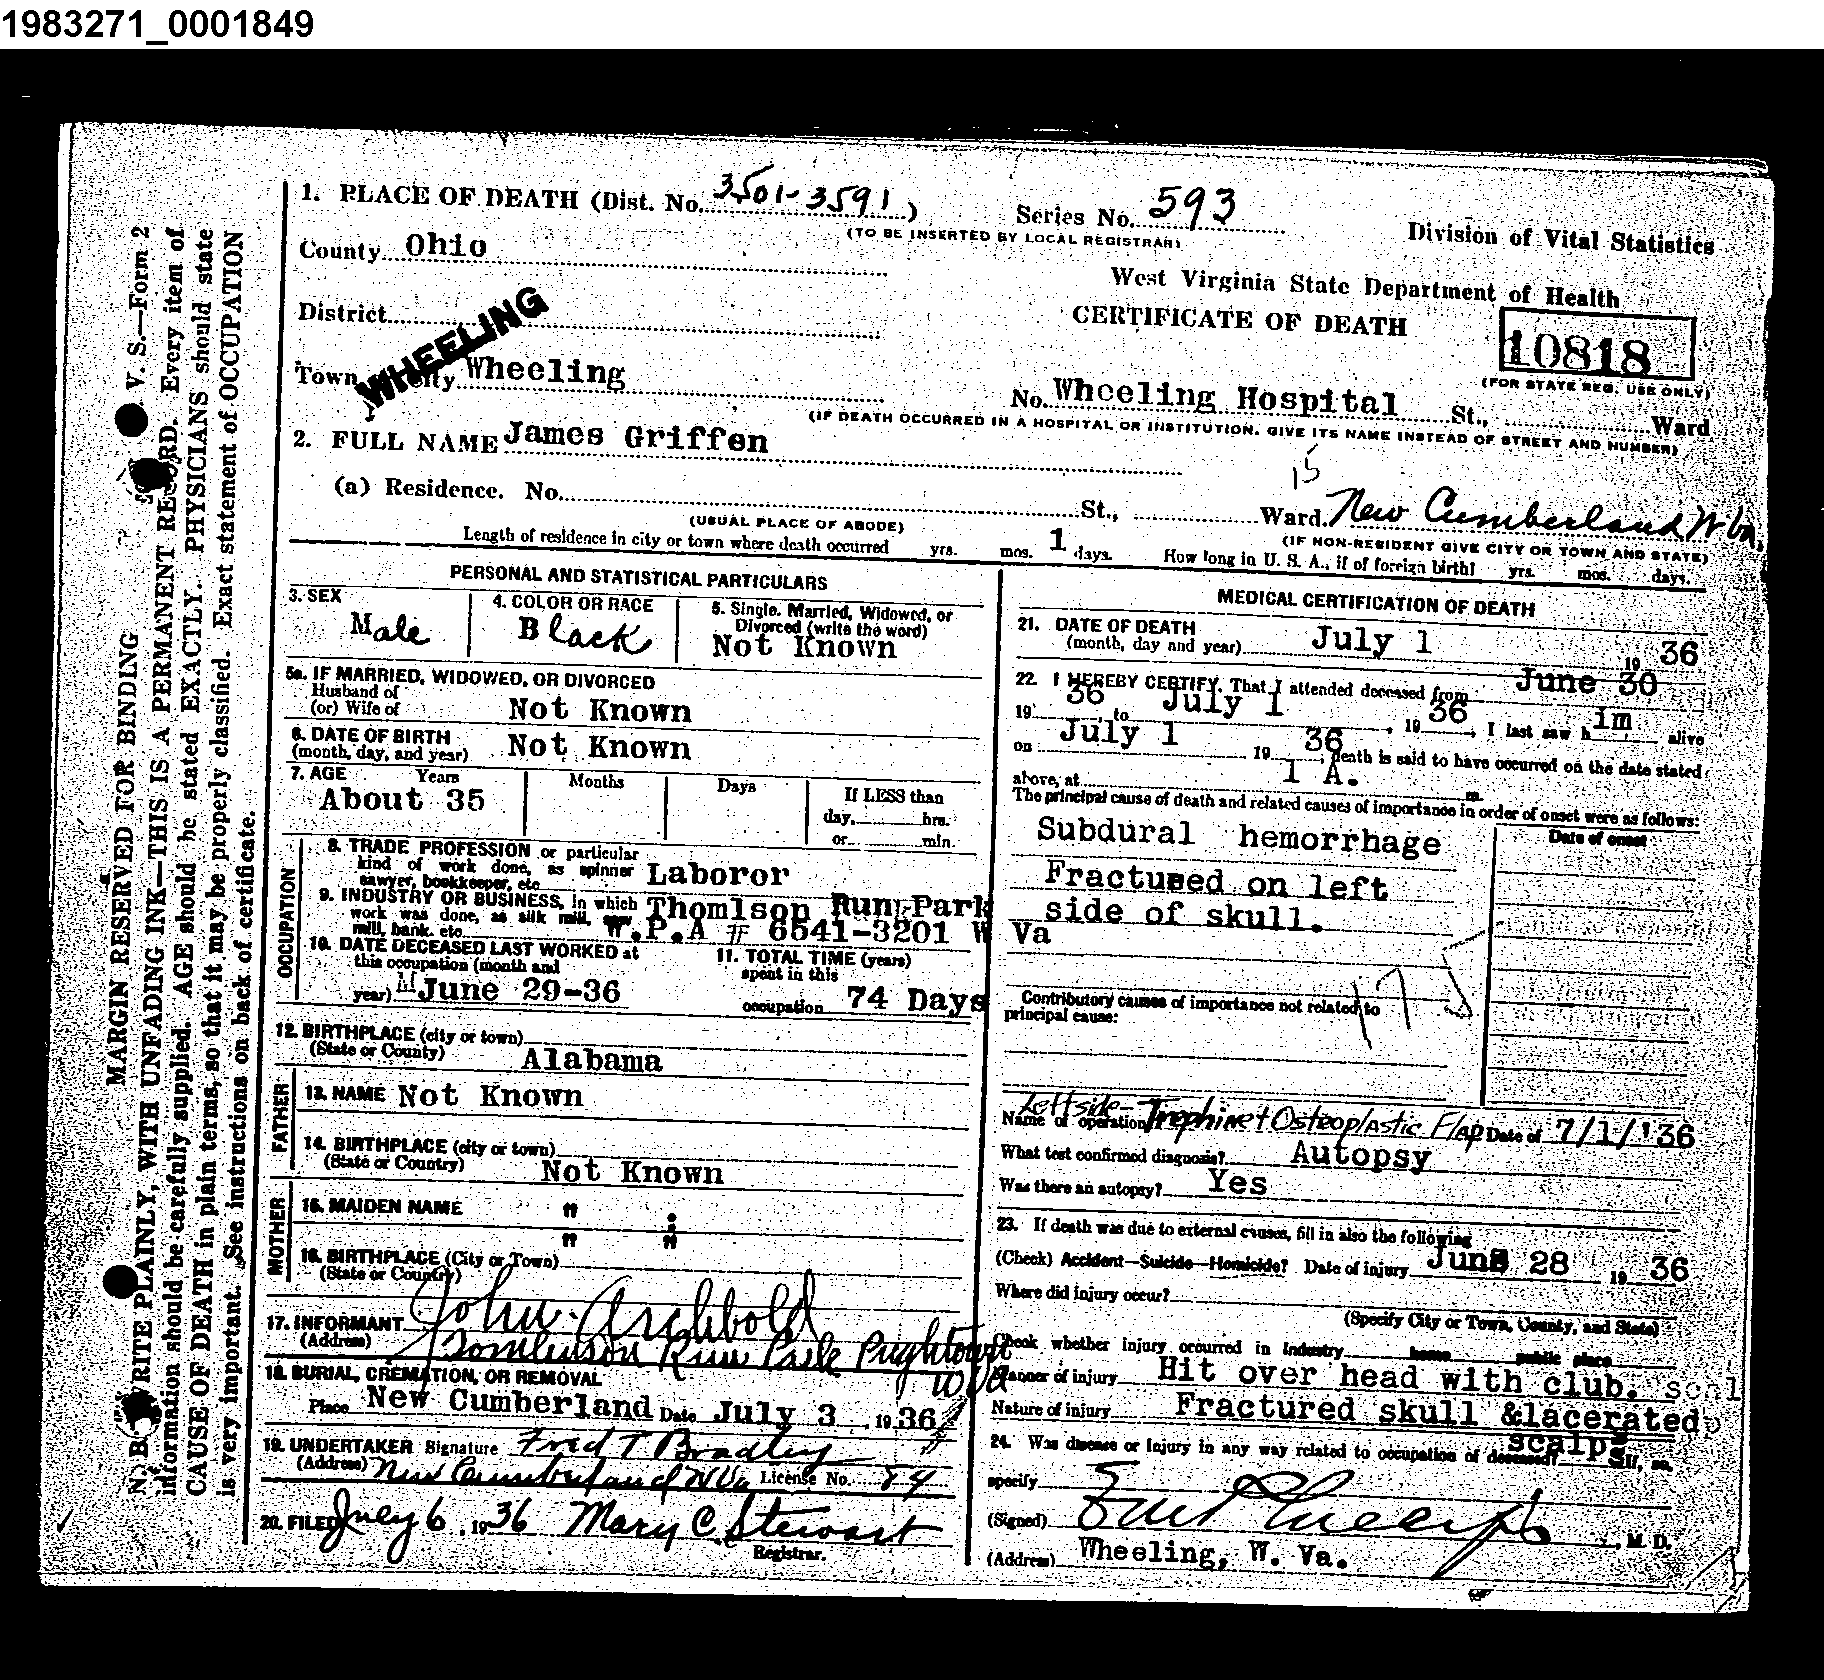 1983271_0001849
1. PLACE OF DEATH (Dist. No. 3501-3591)
Series No. 593
(TO BE INSERTED BY LOCAL REGISTRAR)
Division of Vital Statistics
County Ohio
West Virginia State Department of Health
CERTIFICATE OF DEATH
10818
(FOR STATE REG. USE ONLY)
District
WHEELING
Town City Wheeling
No. Wheeling Hospital St., Ward
(IF DEATH OCCURRED IN A HOSPITAL OR INSTITUTION, GIVE ITS NAME INSTEAD OF STREET AND NUMBER)
2. FULL NAME James Griffen
15
(a) Residence. No. St., Ward. New Cumberland W. Va
(USUAL PLACE OF ABODE)
(IF NON-RESIDENT GIVE CITY OR TOWN AND STATE)
Length of residence in city or town where death occurred yrs. mos. 1 days. How long in U. S. A., if of foreign birth? yrs. mos. days.
PERSONAL AND STATISTICAL PARTICULARS
3. SEX
Male
4. COLOR OR RACE
Black
5. Single, Married, Widowed, or
Divorced (write the word)
Not Known
5a. IF MARRIED, WIDOWED, OR DIVORCED
Husband of
(or) Wife of Not Known
6. DATE OF BIRTH
(month, day, and year) Not Known
7. AGE Years Months Days If LESS than
About 35
day, hrs.
or min.
OCCUPATION
8. TRADE PROFESSION or particular
kind of work done, as spinner
sawyer, bookkeeper, etc. Laboror
9. INDUSTRY OR BUSINESS, in which
work was done, as silk mill, saw
mill, bank, etc. Thomlson Run Park
W.P.A # 6541-3201 W Va
10. DATE DECEASED LAST WORKED at
this occupation (month and
year) June 29-36
11. TOTAL TIME (years)
spent in this
occupation 74 Days
12. BIRTHPLACE (city or town)
(State or County) Alabama
FATHER
13. NAME Not Known
14. BIRTHPLACE (city or town)
(State or Country) Not Known
MOTHER
15. MAIDEN NAME " "
16. BIRTHPLACE (City or Town) " "
(State or Country)
17. INFORMANT John Archbold
(Address) Tomlinson Run Park Pughtown
W Va
18. BURIAL, CREMATION, OR REMOVAL
Place New Cumberland Date July 3, 1936
19. UNDERTAKER Signature Fred T Bradley
(Address) New Cumberland W Va License No. 84
20. FILED July 6, 1936 Mary C. Stewart
Registrar.
MEDICAL CERTIFICATION OF DEATH
21. DATE OF DEATH
(month, day and year) July 1 1936
22. I HEREBY CERTIFY, That I attended deceased from June 30
1936, to July 1, 1936, I last saw h im alive
on July 1 1936, death is said to have occurred on the date stated
above, at 1 A. m.
The principal cause of death and related causes of importance in order of onset were as follows:
Date of onset
Subdural hemorrhage
Fractused on left
side of skull.
175
Contributory causes of importance not related to
principal cause:
Name of operation Left side Trephine + Osteoplastic Flap Date of 7/1/'36
What test confirmed diagnosis? Autopsy
Was there an autopsy? Yes
23. If death was due to external causes, fill in also the following
(Check) Accident—Suicide—Homicide? Date of injury June 28 1936
Where did injury occur?
(Specify City or Town, County, and State)
Check whether injury occurred in Industry home public place
Manner of injury Hit over head with club. scal
Nature of injury Fractured skull &lacerated
scalp
24. Was disease or injury in any way related to occupation of deceased? If, so,
specify
(Signed) M. D.
(Address) Wheeling, W. Va.
V. S.—Form 2
MARGIN RESERVED FOR BINDING
N. B. WRITE PLAINLY, WITH UNFADING INK—THIS IS A PERMANENT RECORD. Every item of
information should be carefully supplied. AGE should be stated EXACTLY. PHYSICIANS should state
CAUSE OF DEATH in plain terms, so that it may be properly classified. Exact statement of OCCUPATION
is very important. See instructions on back of certificate.